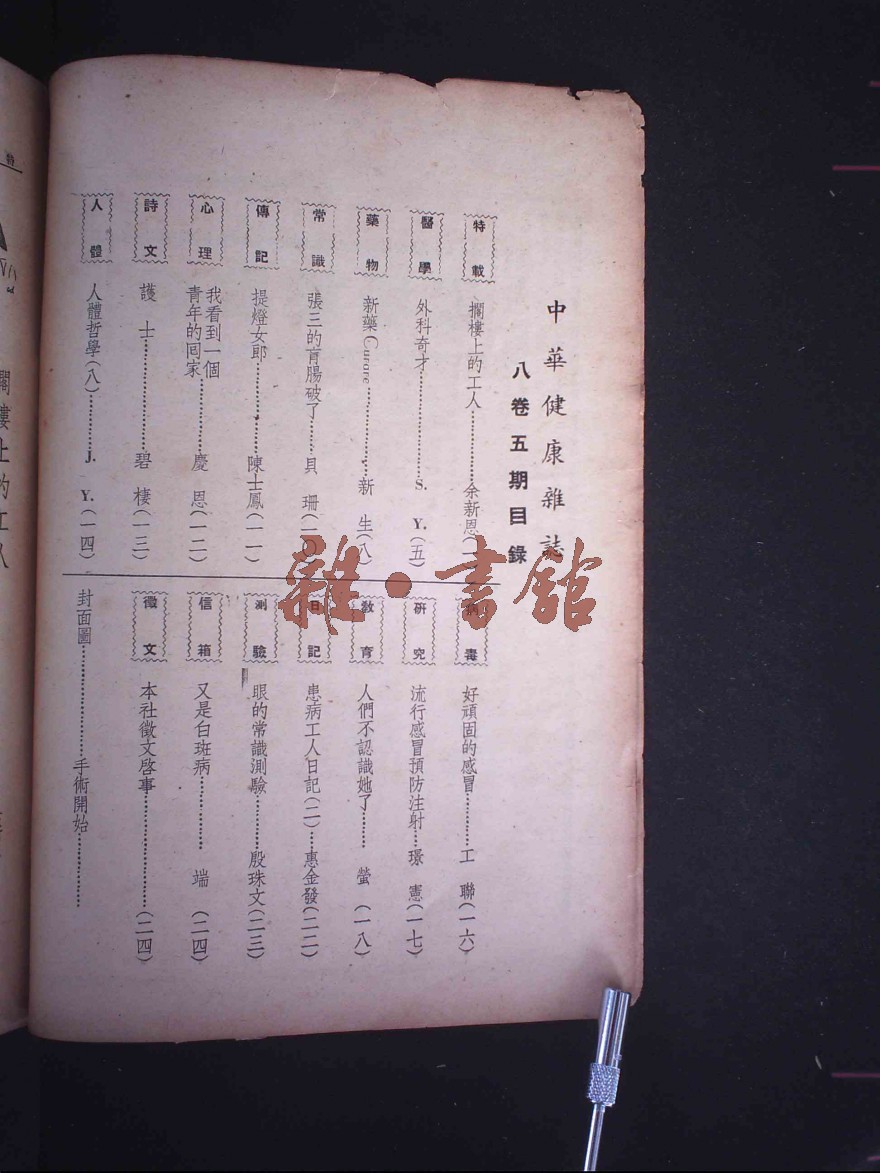 中華健康雜誌
八卷五期目錄
特載 攔樓上的工人…………余新恩(
醫學 外科奇才…………S. Y.(五)
藥物 新藥Curare…………新 生(八)
常識 張三的盲腸破了……貝 珊(一
傳記 提燈女郎…………陳士鳳(一一)
心理 我看到一個
青年的囘家…………慶 恩(一二)
詩文 護 士…………碧 棲(一三)
人體 人體哲學(八)…………J. Y.(一四)
病毒 好頑固的感冒…………工 聯(一六)
研究 流行感冒預防注射……環 憲(一七)
教育 人們不認識她了……螢 (一八)
日記 患病工人日記(二)……惠金發(二二)
測驗 眼的常識測驗…………殷珠文(二三)
信箱 又是白斑病…………端 (二四)
徵文 本社徵文啓事…………(二四)
封面圖…………手術開始…………
雜·書館
特
閣樓上的工人